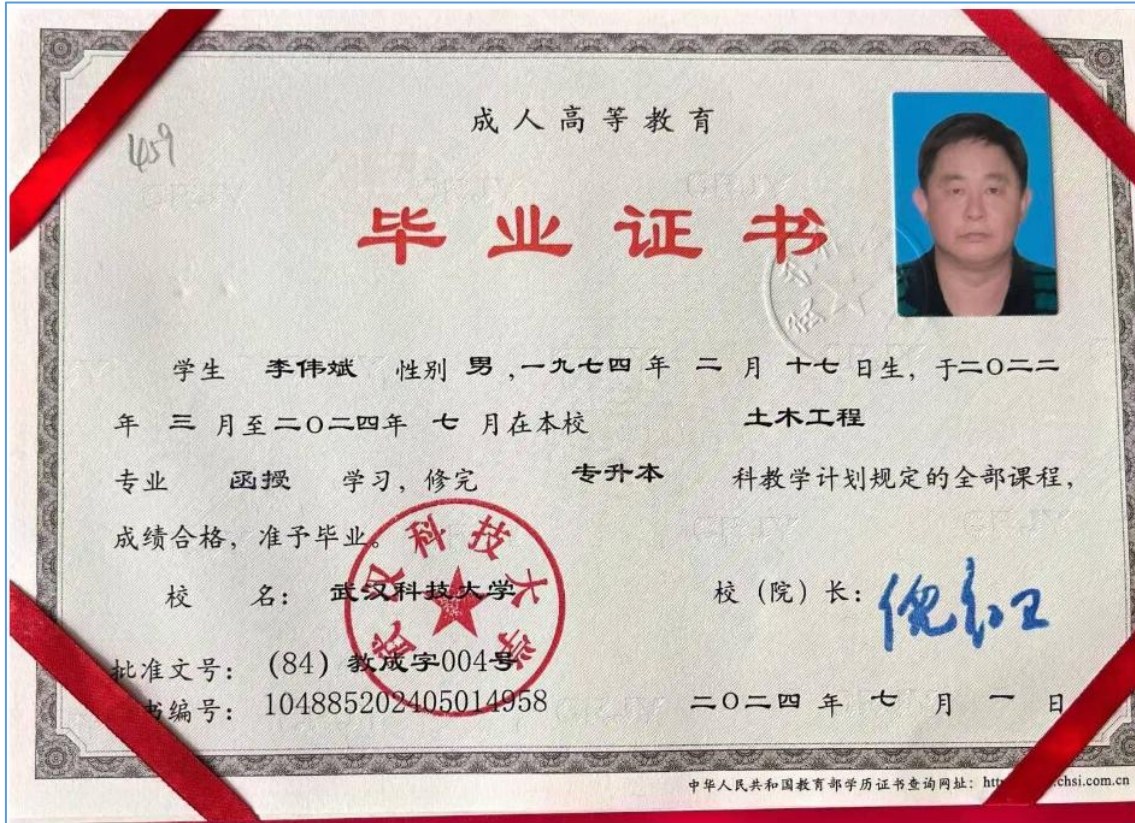 成人高等教育
459
毕业证书
学生 李伟斌 性别 男,一九七四年 二 月 十七 日生,于二〇二二
年 三 月至二〇二四年 七 月在本校 土木工程
专业 函授 学习,修完 专升本 科教学计划规定的全部课程,
成绩合格,准予毕业。
武汉科技大学
校 名: 武汉科技大学 校(院)长: 倪红卫
批准文号: (84)教成字004号
书编号: 104885202405014958 二〇二四 年 七 月 一 日
中华人民共和国教育部学历证书查询网址: htt chsi.com.cn